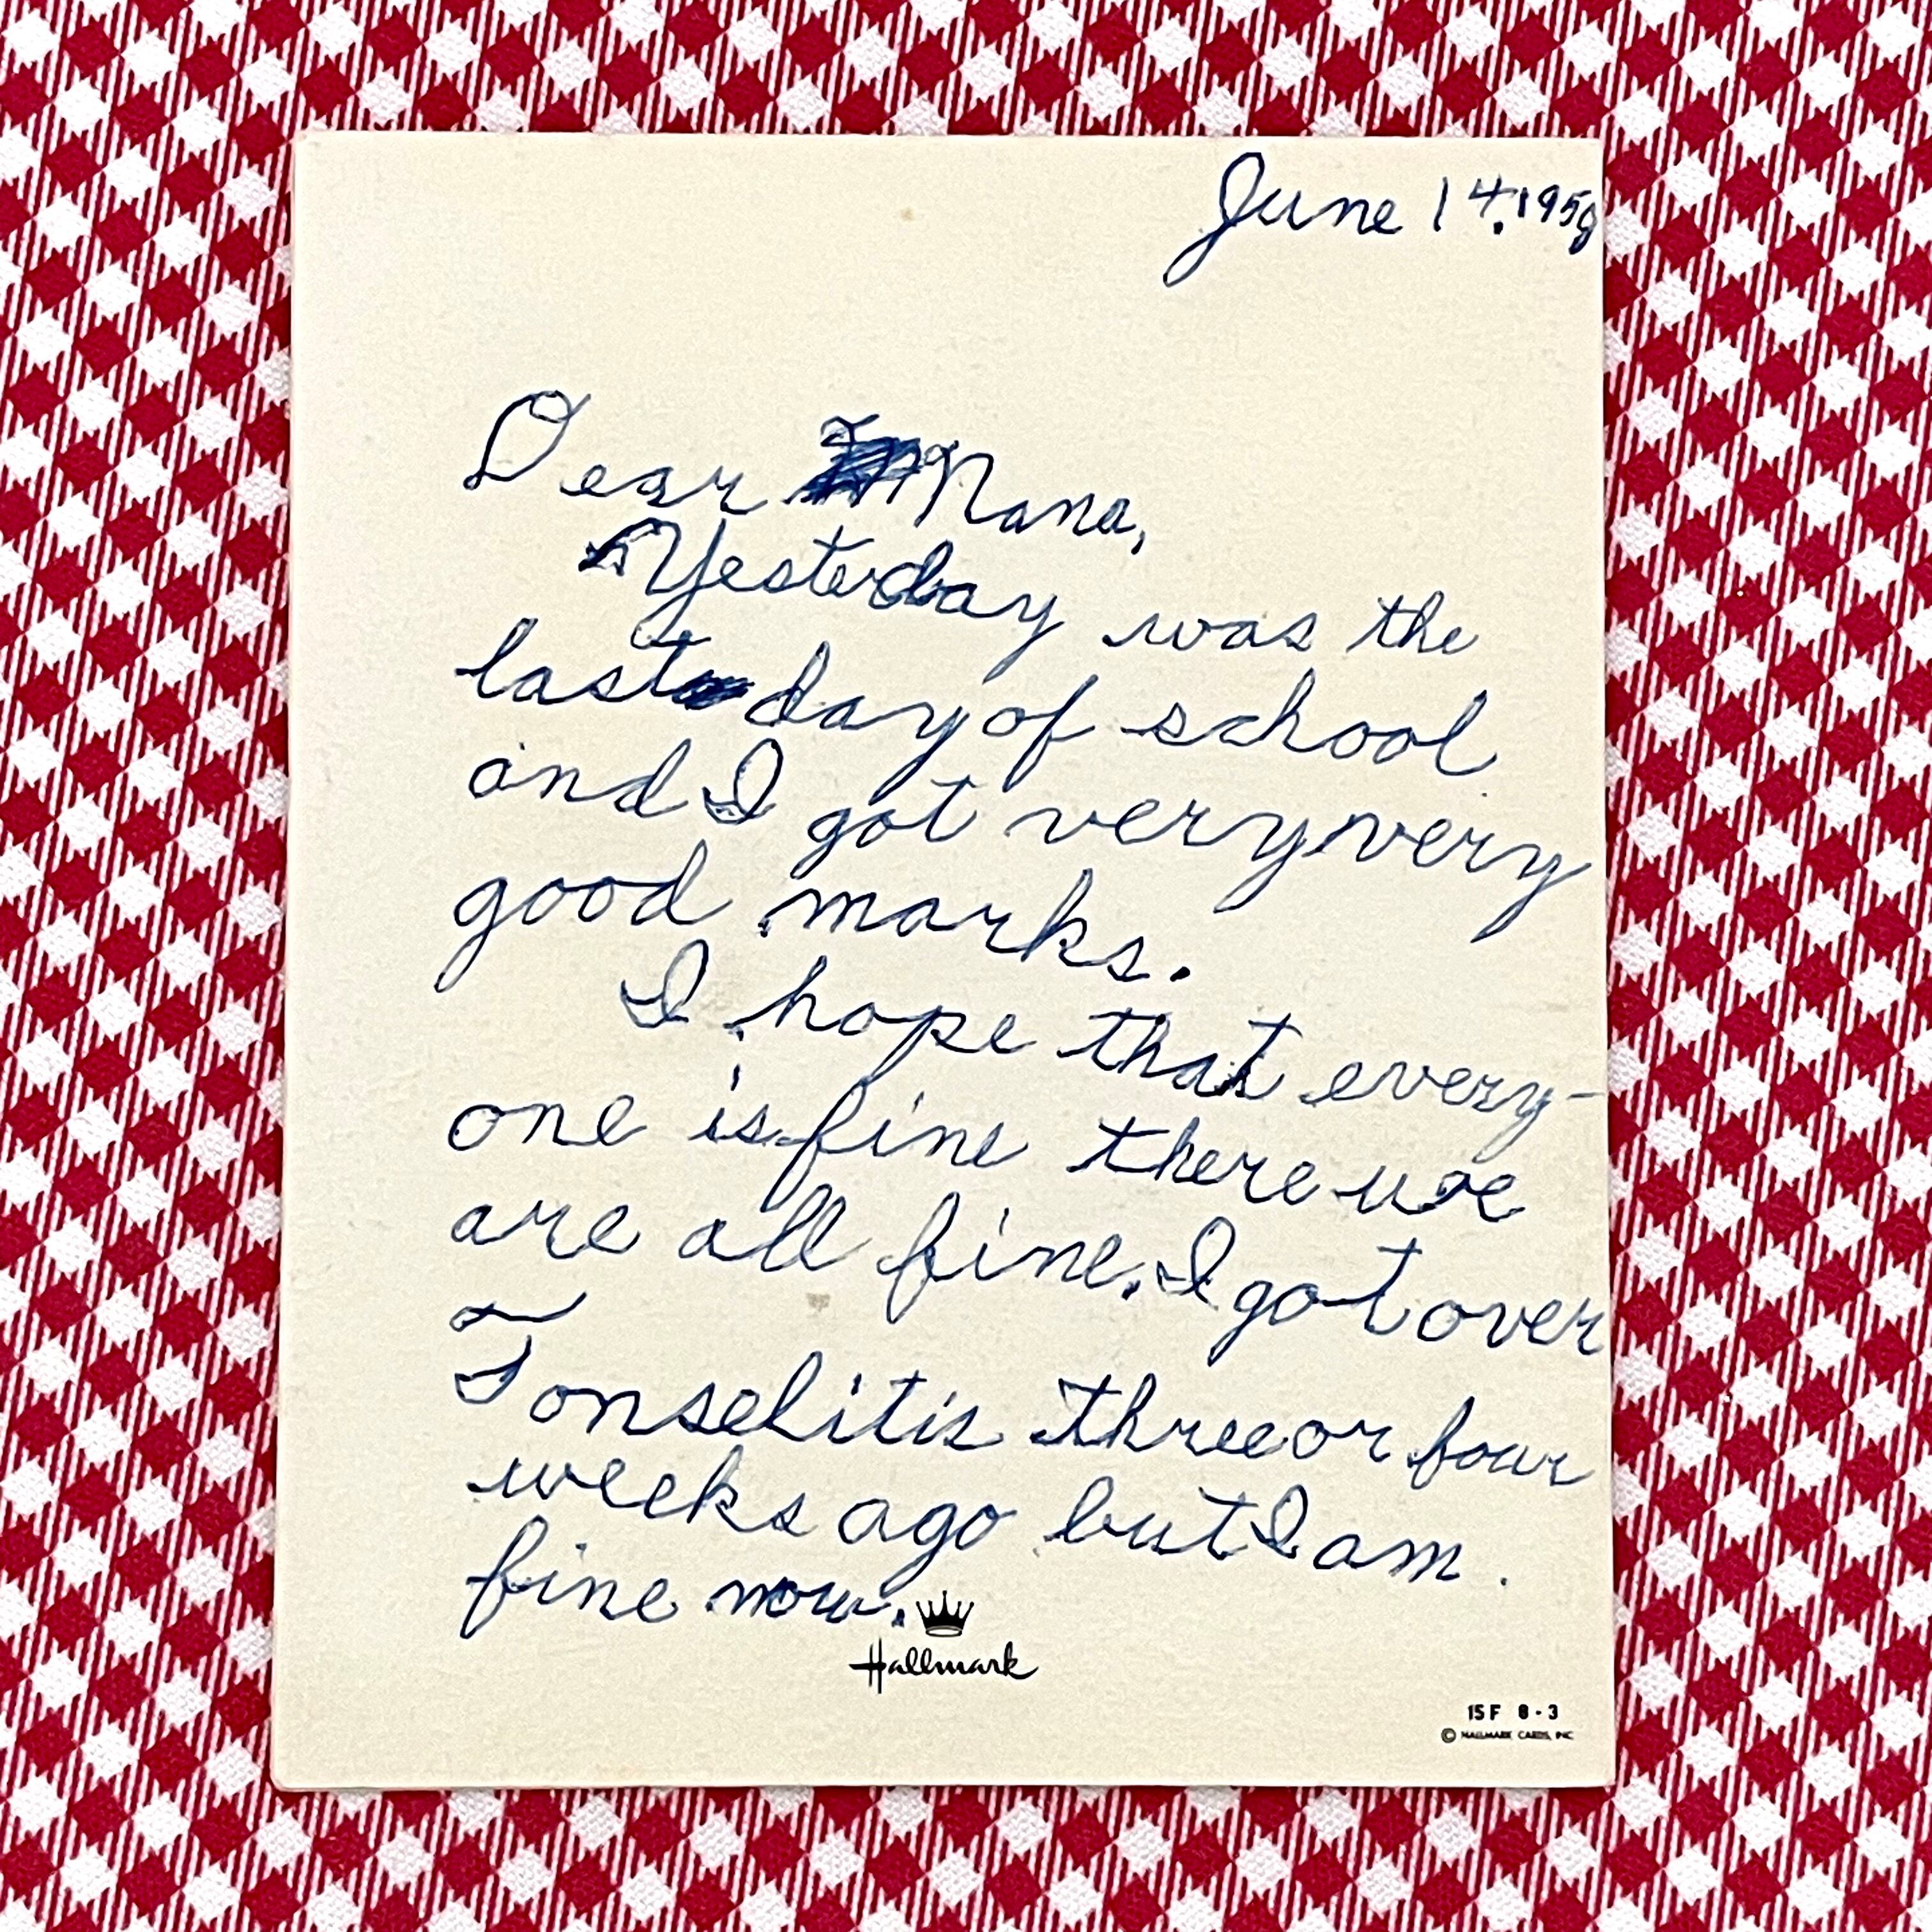 June 14, 1958
Dear Nana,
Yesterday was the
last day of school
and I got very very
good marks.
I hope that every-
one is fine there we
are all fine. I got over
Tonselitis three or four
weeks ago but I am
fine now.
Hallmark
15F 8-3
© HALLMARK CARDS, INC